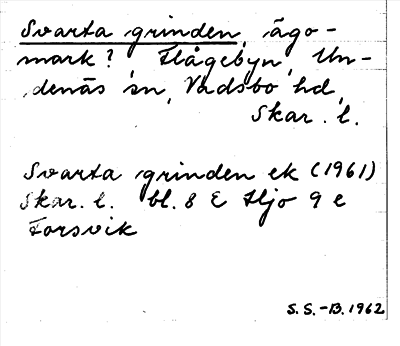 Svarta grinden, ägo-
mark?, Flågebyn, Un-
denäs sn, Vadsbo hd,
Skar. l.
Svarta grinden ek (1961)
Skar. l. bl. 8 E Hjo 9 e
Forsvik
S.S.-B. 1962